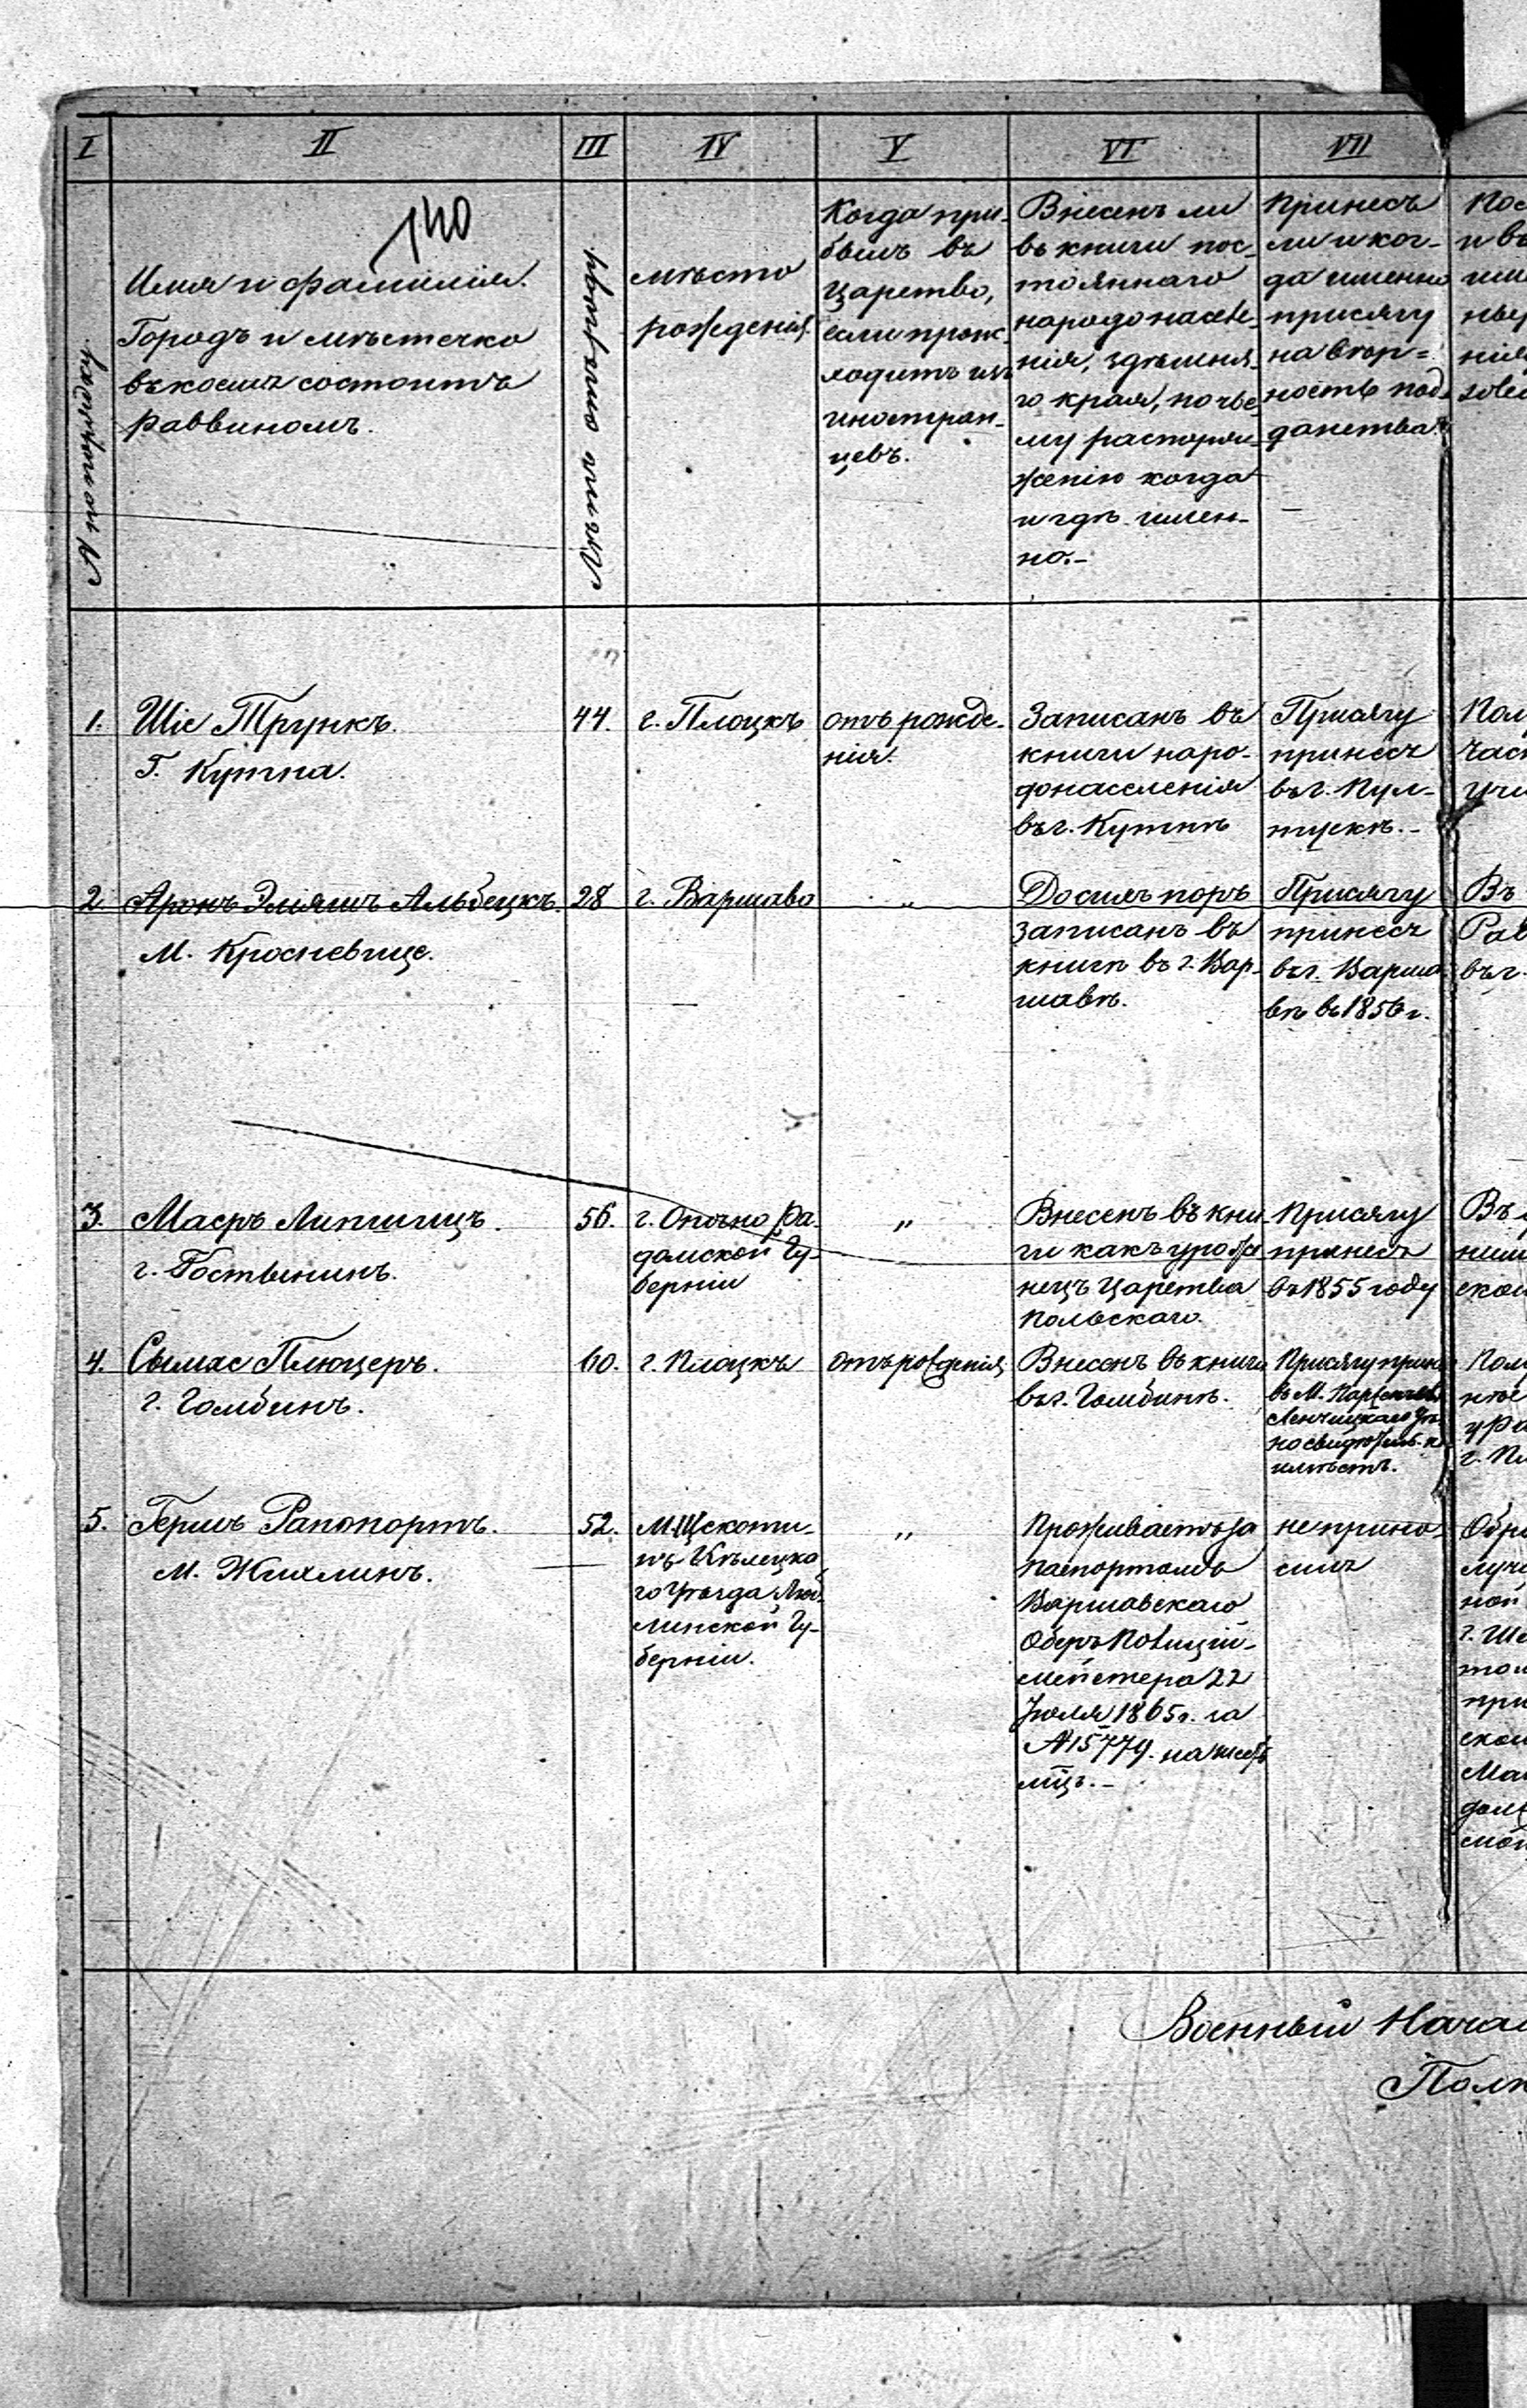 I
II
III
IV
V
VI
VII
140
№ по порядку
Имя и фамилія.
Городъ и мѣстечко
въ коемъ состоитъ
раввиномъ.
Лѣта отъ роду
мѣсто
рожденія
Когда при-
былъ въ
Царство,
если проис-
ходитъ изъ
иностран-
цевъ.
Внесенъ ли
въ книги пос-
тояннаго
народонаселе-
нія, здѣшня-
го края, по чье-
му распоря-
женію когда
и гдѣ имен-
но.-
Принесъ
ли и ког-
да именно
присягу
на вѣр-
ность под-
данства.
1.
Шіе Трункъ.
Г. Кутна.
44.
г. Плоцкъ
отъ рожде-
нія.
Записанъ въ
книги наро-
донаселенія
въ г. Кутнѣ
Присягу
принесъ
въ г. Пул-
тускѣ.-
2
Аронъ Эліяшъ Альбецкъ.
М. Кросневице.
28
г. Варшаво
„
До сихъ поръ
записанъ въ
книги въ г. Вар-
шавѣ.
Присягу
принесъ
въ г. Варша-
вѣ въ 1856 г.
3.
Маеръ Липшицъ.
г. Гостынинъ.
56.
г. Опочно Ра-
домской Гу-
берніи
„
Внесенъ въ кни-
ги какъ уроже
нецъ Царства
Польскаго.
Присягу
принесъ
въ 1855 году
4.
Сымхе Плюцеръ.
г. Гомбинъ.
60.
г. Плоцкъ
отъ рожденія
Внесенъ въ книги
въ г. Гомбинѣ.
Присягу прине
въ М. Парженчевѣ
Ленчицкаго Уѣ.
но свидѣтель. н
имѣетъ.
5.
Гершъ Рапопортъ.
М. Жихлинъ.
52.
М. Щекоци-
нъ Кѣлецка
го Уѣзда Лю-
линской Гу-
берніи.
„
Проживаетъ за
паспортомъ
Варшавскаго
Оберъ Полицій-
мейстера 22
Іюля 1865 г. за
№ 15779. на шесть
мѣц.-
не прино-
силъ
Военный Нача
Полк